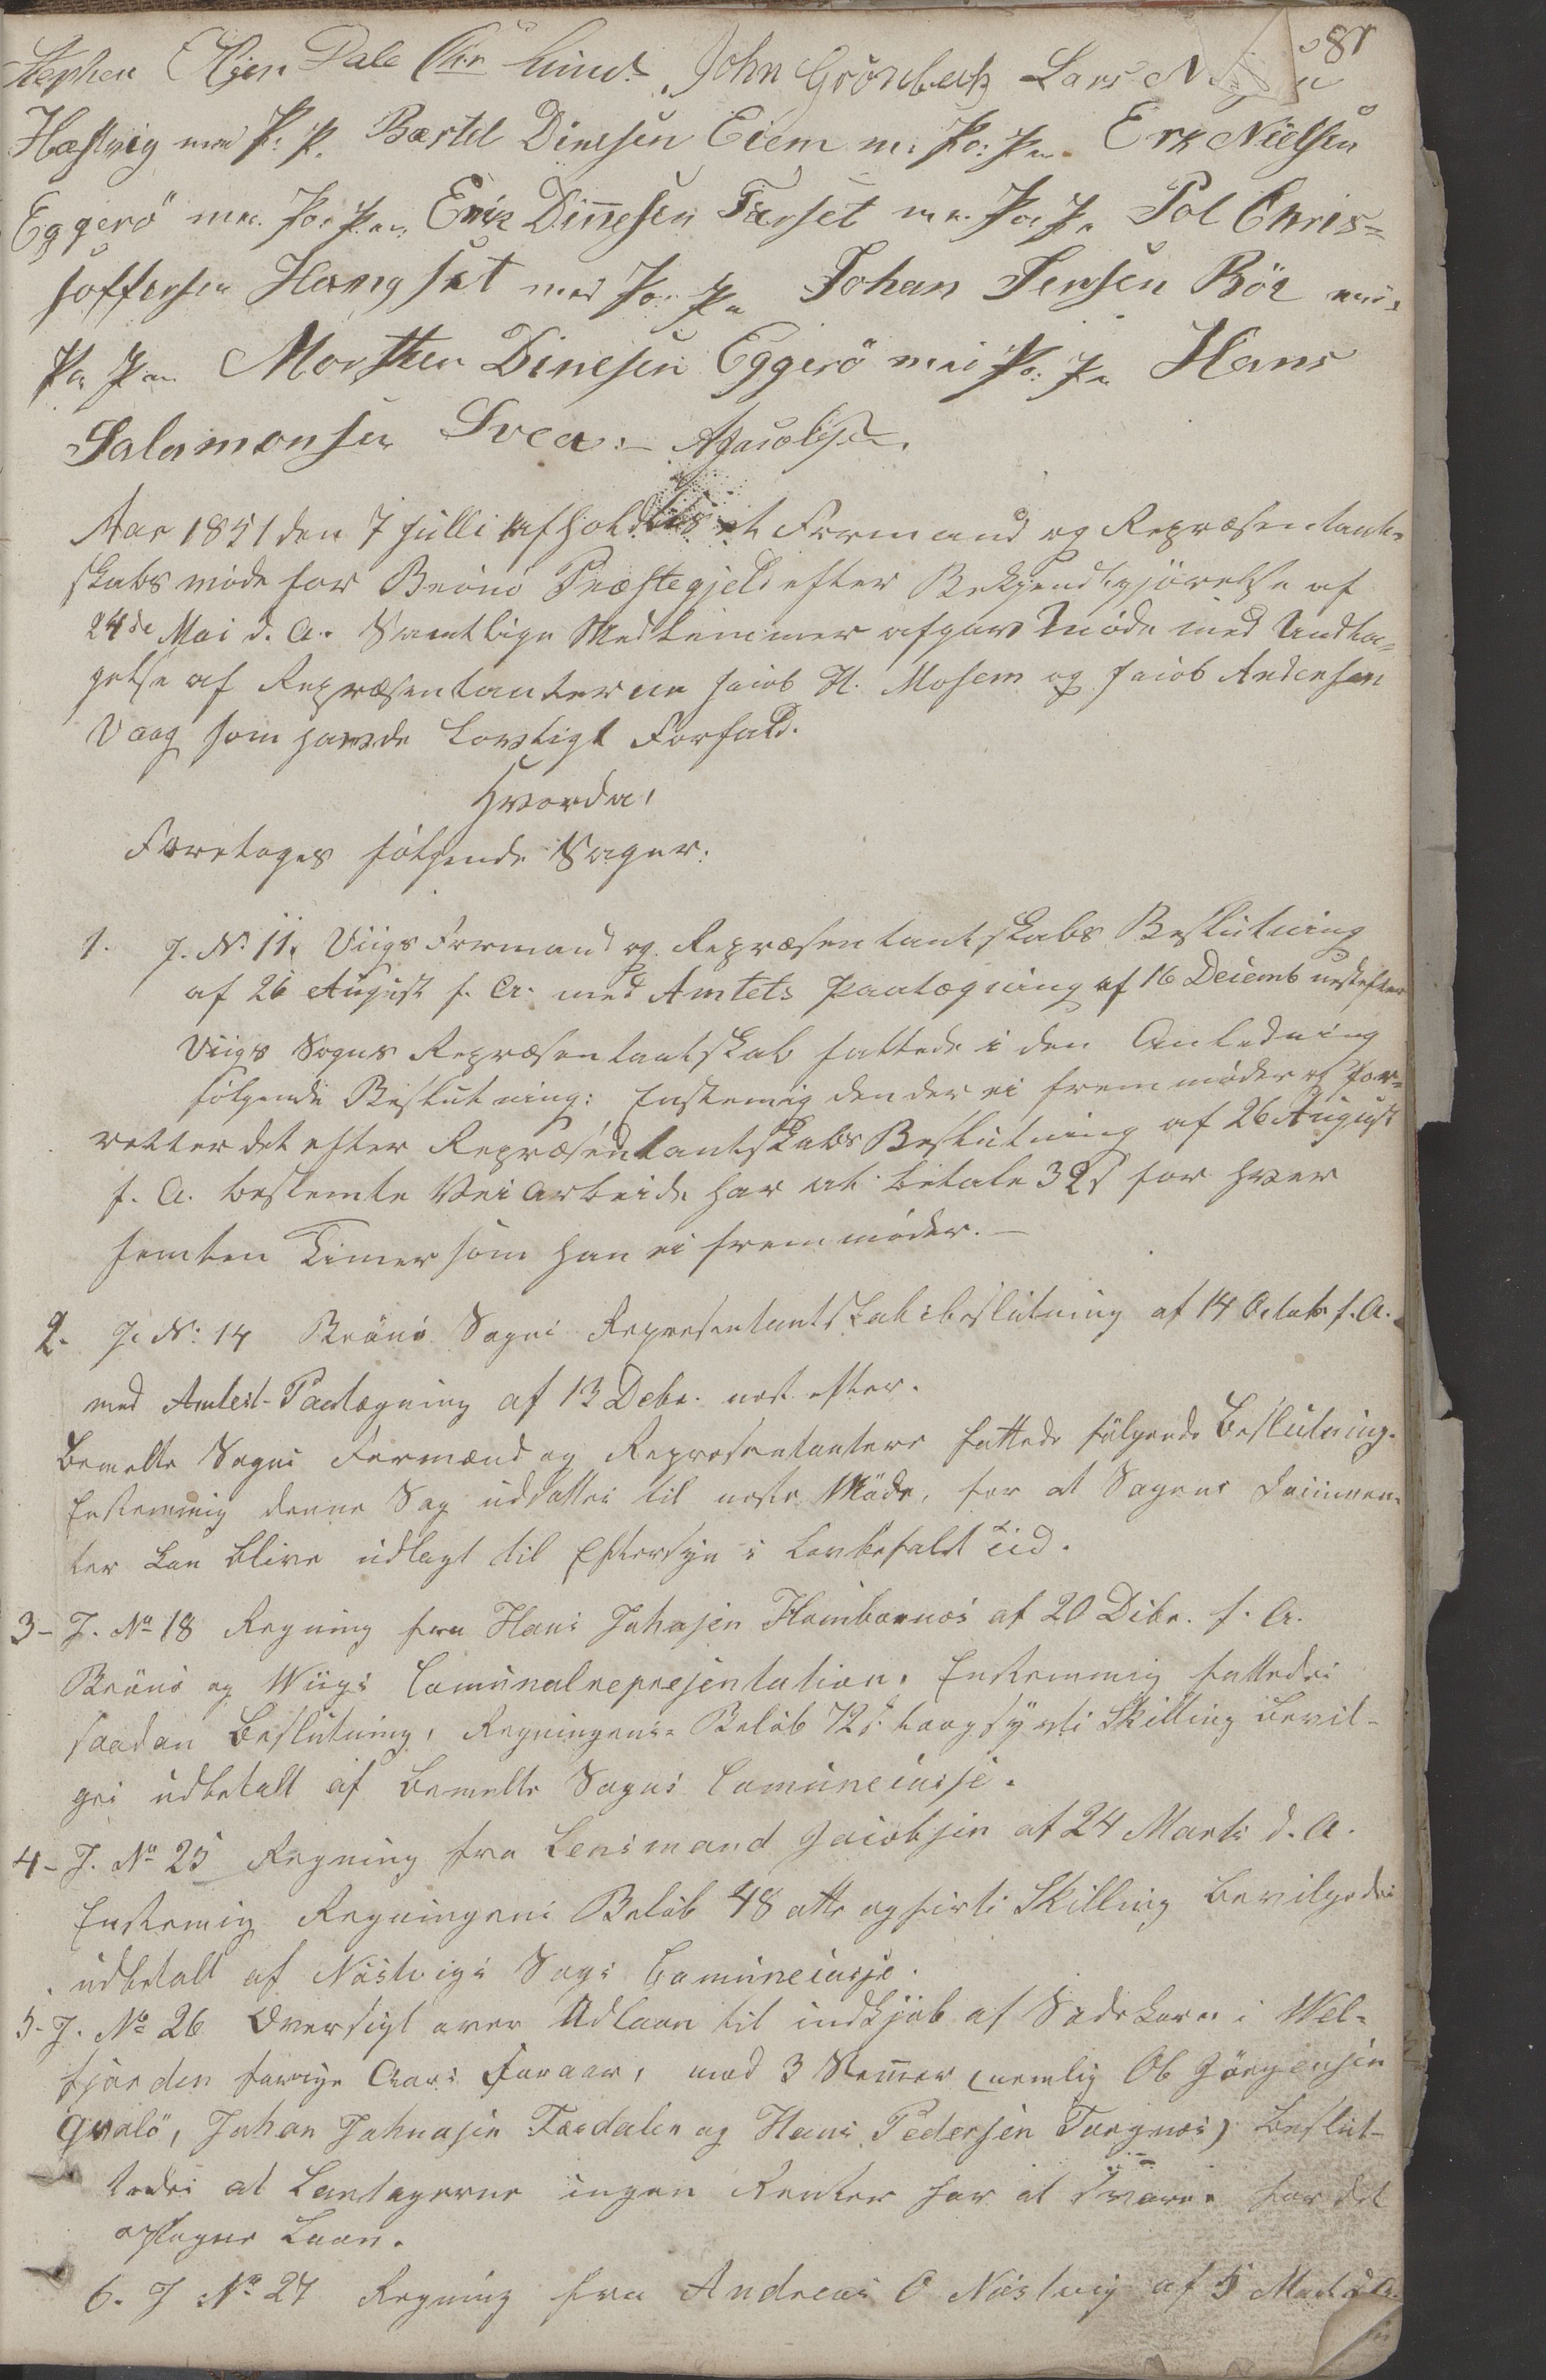 81
Stephen Olsen Dale Chr Lund. John Grönbech Lars N
Hæstvig med P. P. Bærtel Dinesen Eiem m. Po: Pn. Erk Nielsen
Eggerö md. Po: Pn. Erik Dinesen Farset m. Po: Pn Pol Chris=
toffersen Hangset med Po: Pn Johan Jensen Röe med
Po Pn Morthen Dinesen Eggerö med Po: Pn Hans
Salamonsen Svea. AJacobsen.
Aar 1851 den 7 Julli afholdtes et Formand og Repræsentant-
skabs möde for Brönö Præstegjeld efter Bekjendtgjörelse af
24de Mai d. A. Samtlige Medlemmer afgav Möde med Undta-
gelse af Repræsentanterne Jacob H. Mosem og Jacob Andersen
Vaag som havde Lovligt Forfald.
Hvorda,
Foretoges fölgende Sager:
1. J. No 11. Viigs Formand og Repræsentantskabs Beslutning
af 26 August f. A. med Amtets Paategning af 16 Decemb nestefter
Viigs Sogns Repræsentantskab fattede i den Anledning
fölgende Beslutning: Enstemig den der ei fremmöder og for-
retter det efter Repræsendtantskabs Beslutning af 26 August
f. A. bestemte Vei Arbeide har at betale 32 s for hver
femten Timer som han ei fremmöder. —
2. J. No: 14 Brönö Sogns Representantskabsbeslutning af 14 Octobr f. A.
med Amtest-Paategning af 13 Debr. nest efter.
Bemelte Sogns Formænd og Repræsentantere fattede fölgende Beslutning.
Enstemmig denne Sag udsattes til neste Möde, for at Sagens Docümen-
ter kan blive udlagt til Eftersyn i Lovbefalet Tid.
3- J. No 18 Regning fra Hans Johnsen Hombornæs af 20 Debr. f. A.
Brönö og Wiigs Comunalrepresentation. Enstemmig fattedes
saadan Beslutning, Regningens Belöb 72 s. toogsyvti Skilling bevil-
ges udbetalt af bemelte Sogns Comunecasse.
4- J. No 25 Regning fra Lensmand Jacobsen af 24 Marts d. A.
Enstemig Regningens Belöb 48 otte og firti Skilling bevilgedes
udbetalt af Nöstvigs Sogs Comunecasse.
5- J. No 26 Oversigt over Udlaan til indkjöb af Sædekorn i Wel-
fjorden forrige Aars Foraar, med 3 Stemmer (nemlig Ob Jörgensen
Qvalö, Johan Johnasen Tardalen og Hans Pedersen Torgnes) beslut-
tedes at Lantagerne ingen Renter har at svare for det
optagne Laan.
6. J No 27 Regning fra Andreas O Nöstvig af 5 Mai d A.